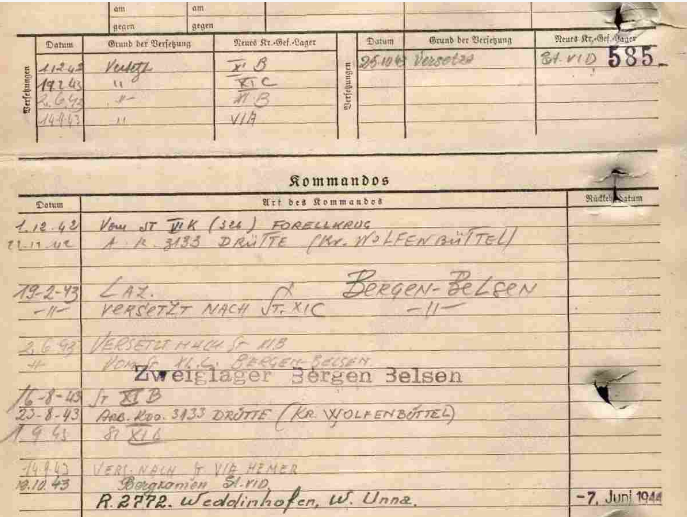 am am
gegen gegen
Datum Grund der Versetzung Neues Kr.-Gef.-Lager Datum Grund der Versetzung Neues Kr.-Gef.-Lager
Versetzungen Versetzungen
1.12.42 Versetzt XI B 25.10.43 Versetzt St. VI D 585
19.2.43 " XI C
2.6.43 -"- XI B
14.9.43 " VI A
Kommandos
Datum Art des Kommandos
1.12.42 Vom ST (326) FORELLKRUG
A. K. 3133 DRÜTTE (Kr. WOLFENBÜTTEL)
19-2-43 LAZ. BERGEN-BELSEN
-"- VERSETZT NACH ST. XI C -"-
2.6.43 VERSETZT NACH St XI B
" VOM St XI.C. BERGEN BELSEN
Zweiglager Bergen Belsen
16-8-43 ST XI B
23-8-43 ARB. KDO. 3133 DRÜTTE (KR. WOLFENBÜTTEL)
1 9 43 St XI B
14.9.43 VERS. NACH St VI A HEMER
10.43 Bergkamen St. VI D
R. 2772. Weddinhofen, W. Unna. -7. Juni 1944